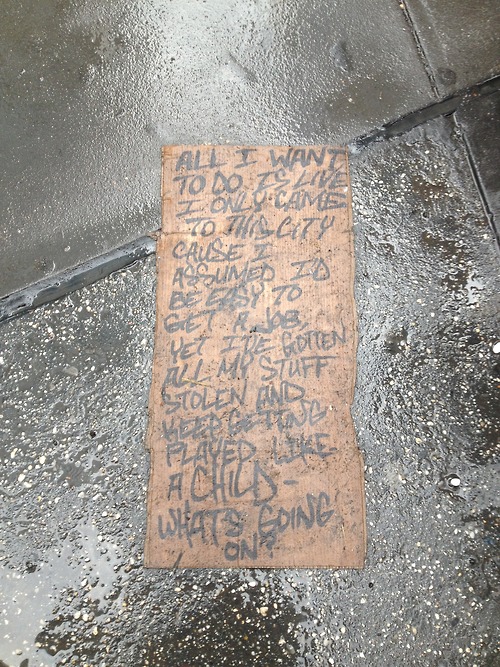 ALL I WANT
TO DO IS LIVE
I ONLY CAME
TO THIS CITY
CAUSE I
ASSUMED I'D
BE EASY TO
GET A JOB,
YET I'VE GOTTEN
ALL MY STUFF
STOLEN AND
KEEP GETTING
PLAYED LIKE
A CHILD -
WHATS GOING
ON?